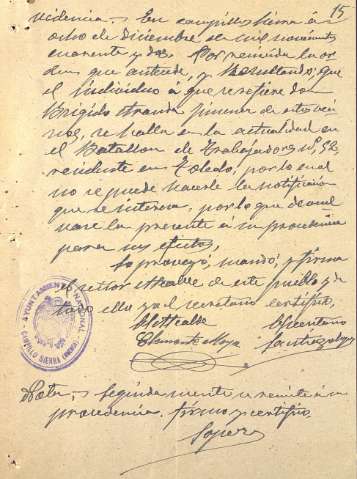 15
videncia. En Campillo Sierra á
ocho de diciembre de mil novecientos
cuarenta y dos. Por recibida la or
den que antecede, y Resultando, que
el individuo á que se refiere don
Brigido Aranda Jimenez de esta veci
, se halla en la actualidad en
el Batallon de Trabajadores nº
residente en Toledo, por lo cual
no se puede hacerle la notificación
que se interesa, por lo que devuel
vase la presente á su procedencia
para sus efectos.
Lo proveyó, mandó, y firma
el señor Alcalde de este pueblo y de
todo ello yo el secretario certifico.
El Alcalde El Secretario
Clemente Moya
AYUNTAMIENTO NACIONAL
CAMPILLO SIERRA (CUENCA)
Nota; Seguidamente se remite á su
procedencia. firmo y certifico.
Lopez